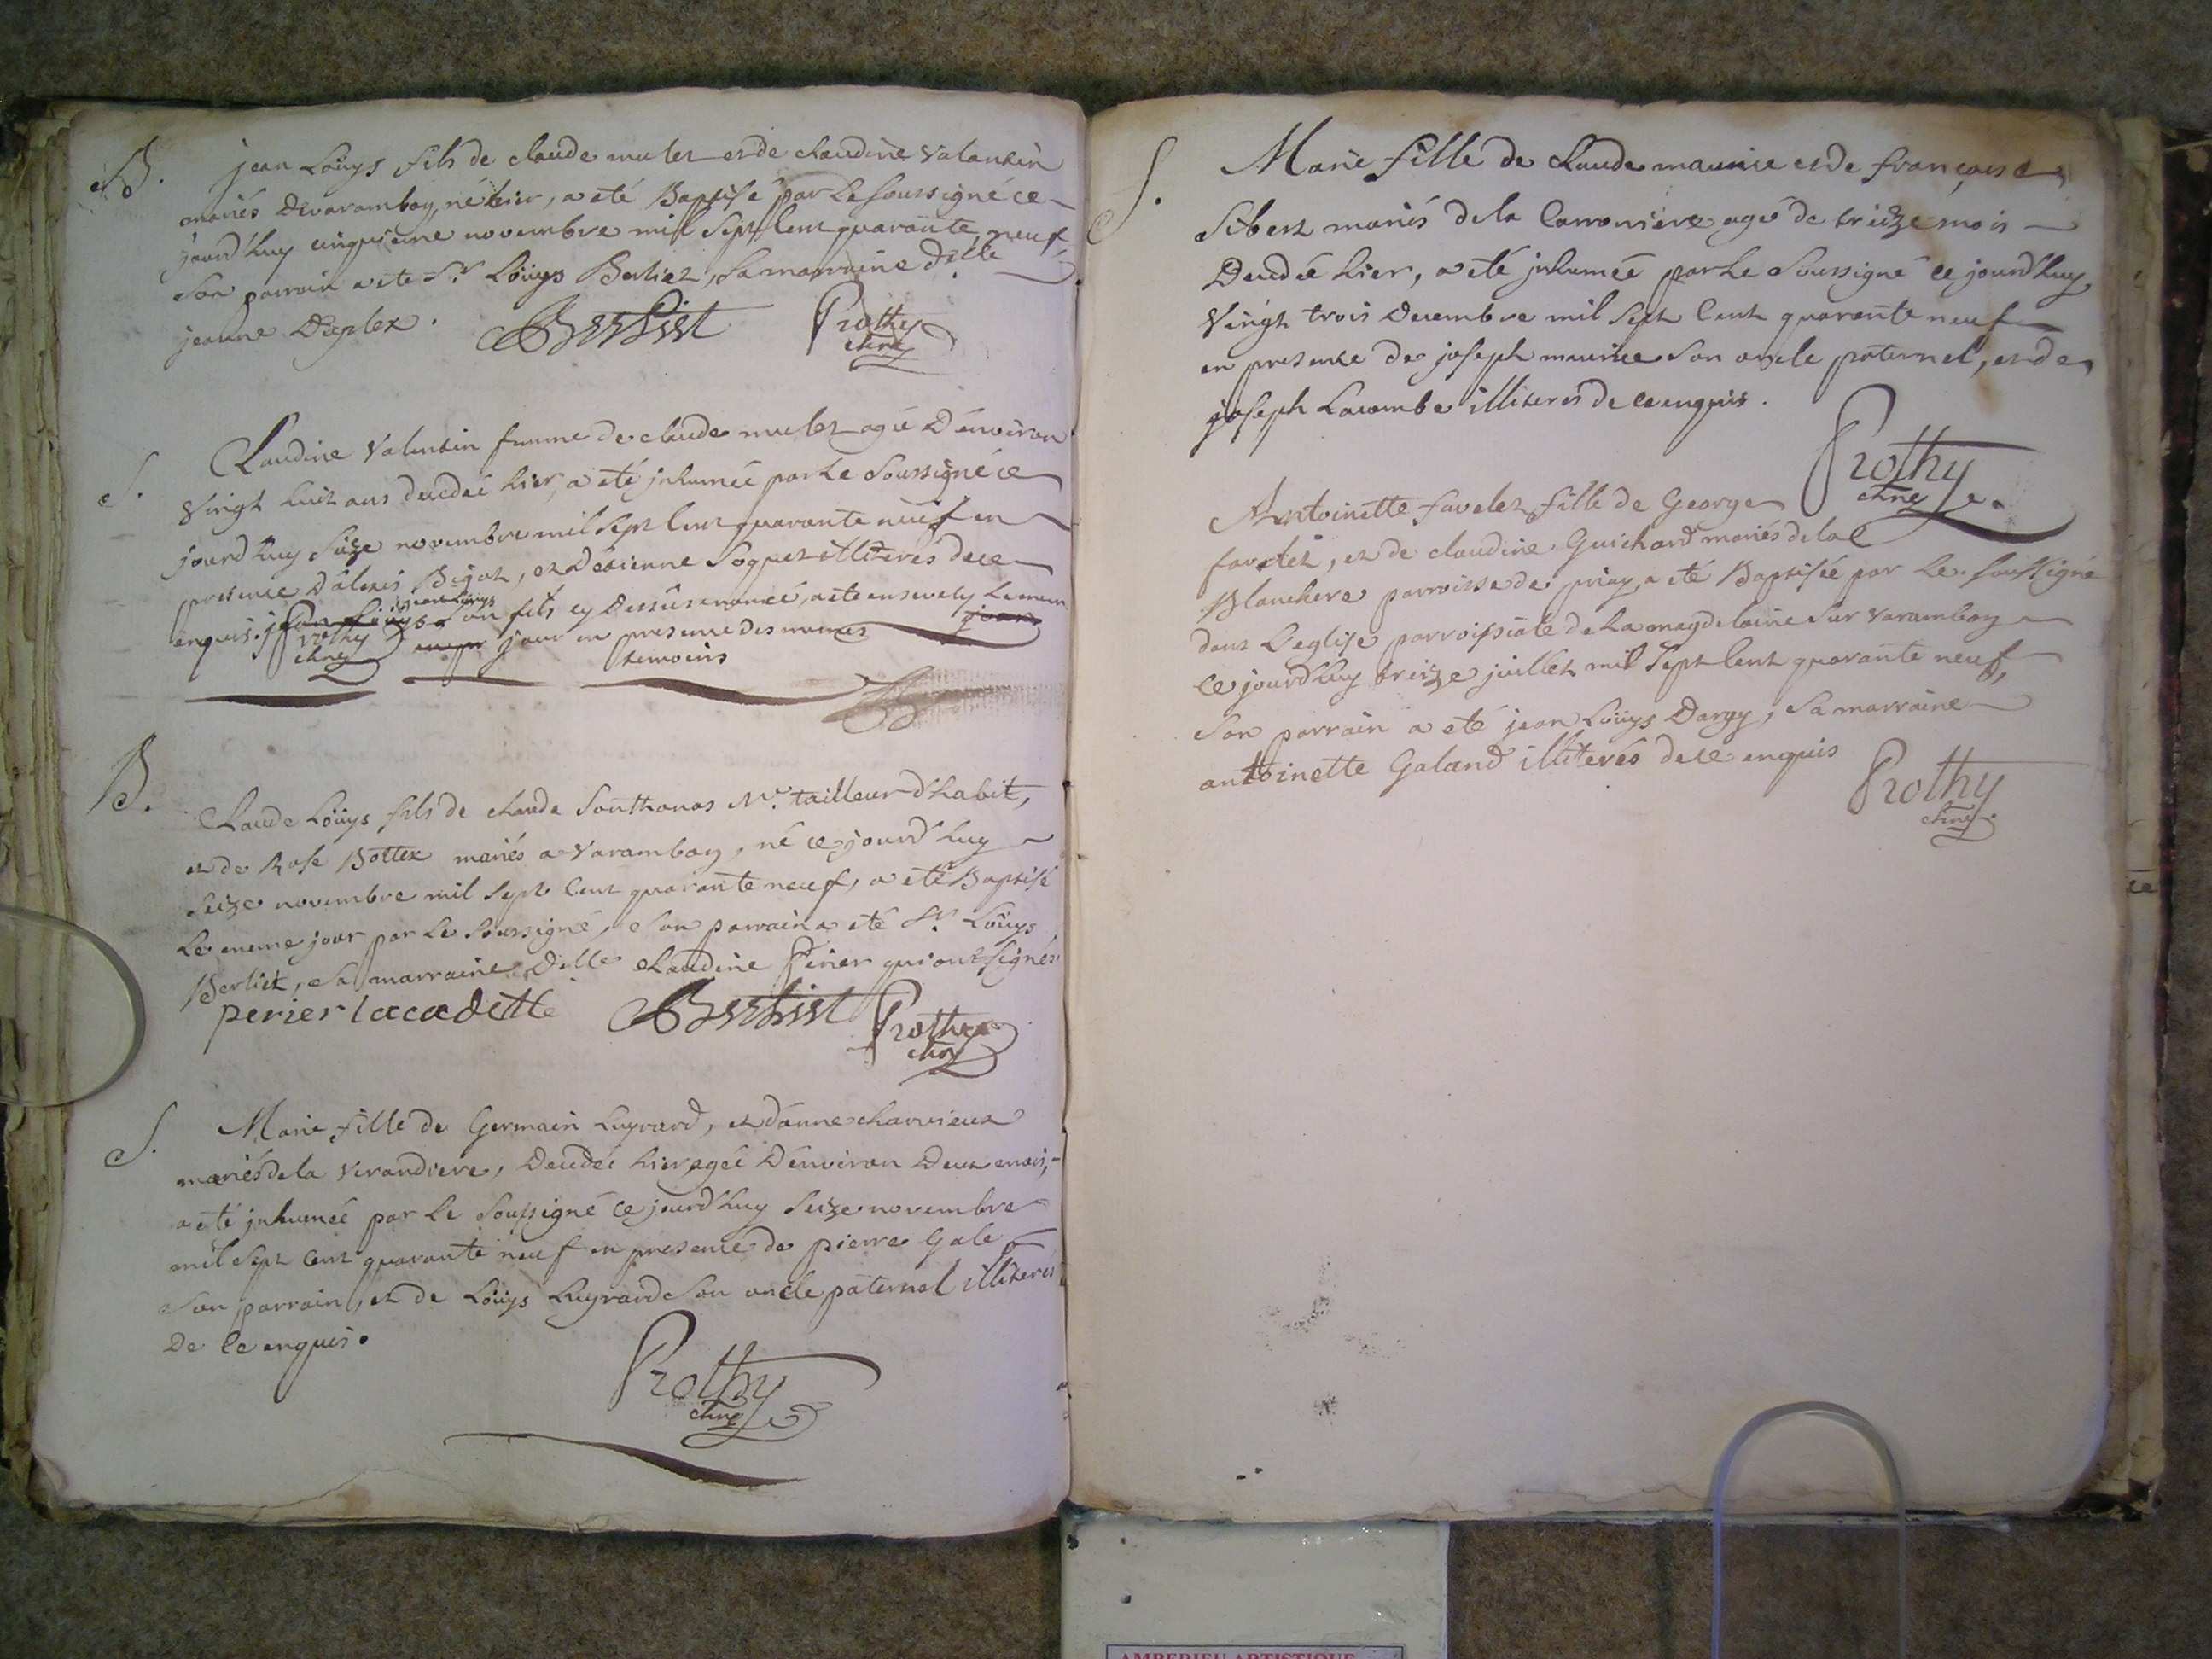 B. jean Loüys fils de claude mulet et de claudine Valantin
mariés de varambon, né hier, a eté Baptisé par Le soussigné ce
jourd'huy cinquieme novembre mil sept cent quarante neuf,
son parrain a ete Sr. Loüys Berliet, sa marraine dlle
jeanne Duplex.
Berliet Prothy
S. Claudine Valentin femme de claude mulet agée d'environ
vingt huit ans decedée hier, a eté jnhumée par Le soussigné ce
jourd'huy seize novembre mil sept cent quarante neuf en
presence d'alexis Bigot, et d'etienne Soquet illiterés de ce
enquis. jean Loüys son fils cy dessus enoncé, a ete ensevely Le mem
jour en presence des memes
temoins
Prothy
B. Claude Loüys fils de claude Santhonas Me. tailleur d'habit,
et de Rose Bottex mariés a varambon, né ce jourd'huy
seize novembre mil sept cent quarante neuf, a eté Baptisé
Le meme jour par Le soussigné, son parrain a eté Sr. Loüys
Berliet, sa marraine Dlle claudine Perier qui ont signés
perier lacadette Berliet Prothy
S. Marie fille de Germain Luyrard, et d'anne charvieux
mariés de la verandiere, decedée hier agée d'environ deux mois,
a eté jnhumée par Le soussigné ce jourd'huy seize novembre
mil sept cent quarante neuf en presence de pierre Gale
son parrain, et de Loüys Luyrard son oncle paternel illiterés
de ce enquis.
Prothy
S. Marie fille de claude maurice et de françoise
Sibert mariés de la Carroniere agée de treize mois
Decedée hier, a eté jnhumée par Le soussigné ce jourd'huy
vingt trois decembre mil sept cent quarante neuf
en presence de joseph maurice son oncle paternel, et de
joseph Lacombe illiterés de ce enquis.
Prothy
Antoinette favelet fille de George
favelet, et de claudine Guichard mariés de la
Blanchere parroisse de priay, a eté Baptisée par Le soussigné
dans L'eglise parroissiale de La magdelaine sur varambon
ce jourd'huy treize juillet mil sept cent quarante neuf,
son parrain a eté jean Loüys Darcy, sa marraine
antoinette Galand illiterés de ce enquis
Prothy
AMBERIEU ARTISTIQUE